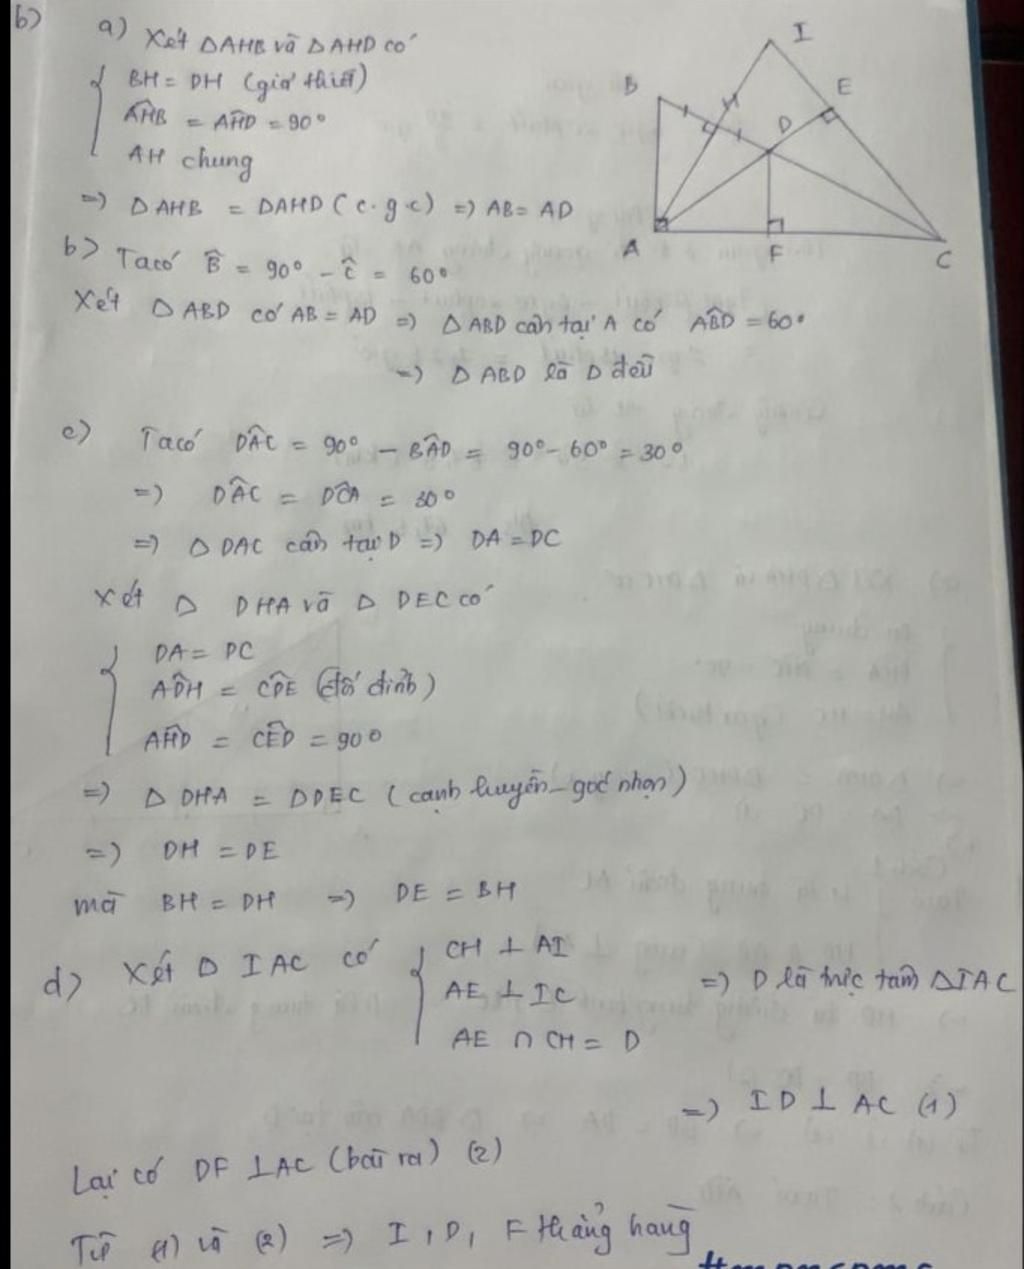 b)
a) Xét ΔAHB và ΔAHD có
BH = DH (giả thiết)
AHB̂ = AHD̂ = 90°
AH chung
=) ΔAHB = ΔAHD (c.g.c) =) AB = AD
b) Ta có B̂ = 90° - Ĉ = 60°
Xét ΔABD có AB = AD =) ΔABD cân tại A có ABD̂ = 60°
=) ΔABD là Δ đều
c) Ta có DAĈ = 90° - BAD̂ = 90° - 60° = 30°
=) DAĈ = DCÂ = 30°
=) ΔDAC cân tại D =) DA = DC
Xét Δ DHA và Δ DEC có
DA = DC
ADĤ = CDÊ (đối đỉnh)
AHD̂ = CED̂ = 90°
=) ΔDHA = ΔDEC (cạnh huyền - góc nhọn)
=) DH = DE
mà BH = DH =) DE = BH
d) Xét Δ IAC có
CH ⊥ AI
AE ⊥ IC
AE ∩ CH = D
=) D là trực tâm ΔIAC
=) ID ⊥ AC (1)
Lại có DF ⊥ AC (bài ra) (2)
Từ (1) và (2) =) I, D, F thẳng hàng
I
B
E
H
D
A
F
C